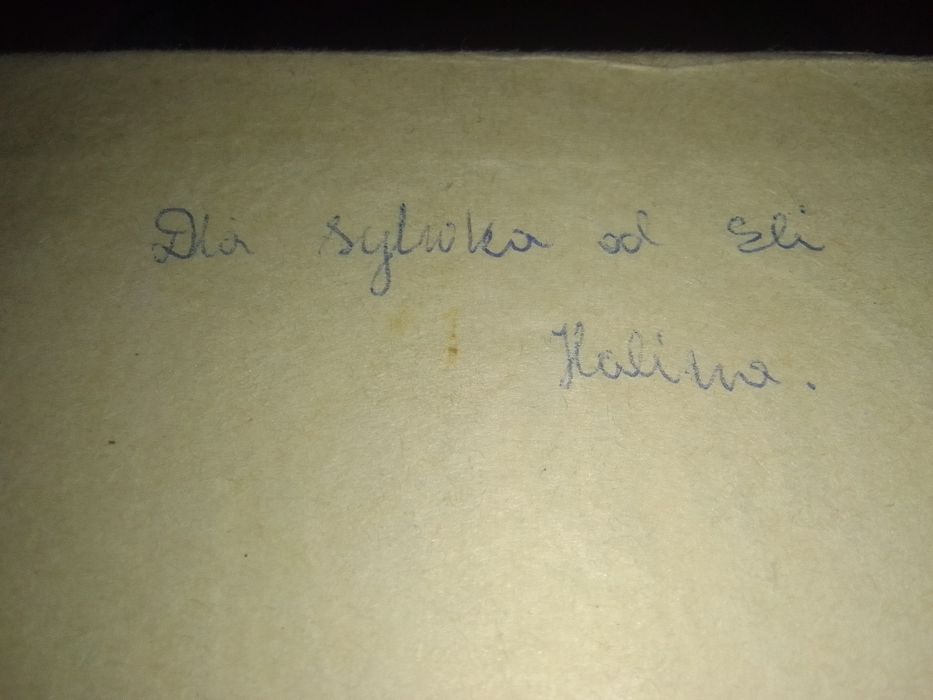 Dla Sylwka od Eli
Halina.